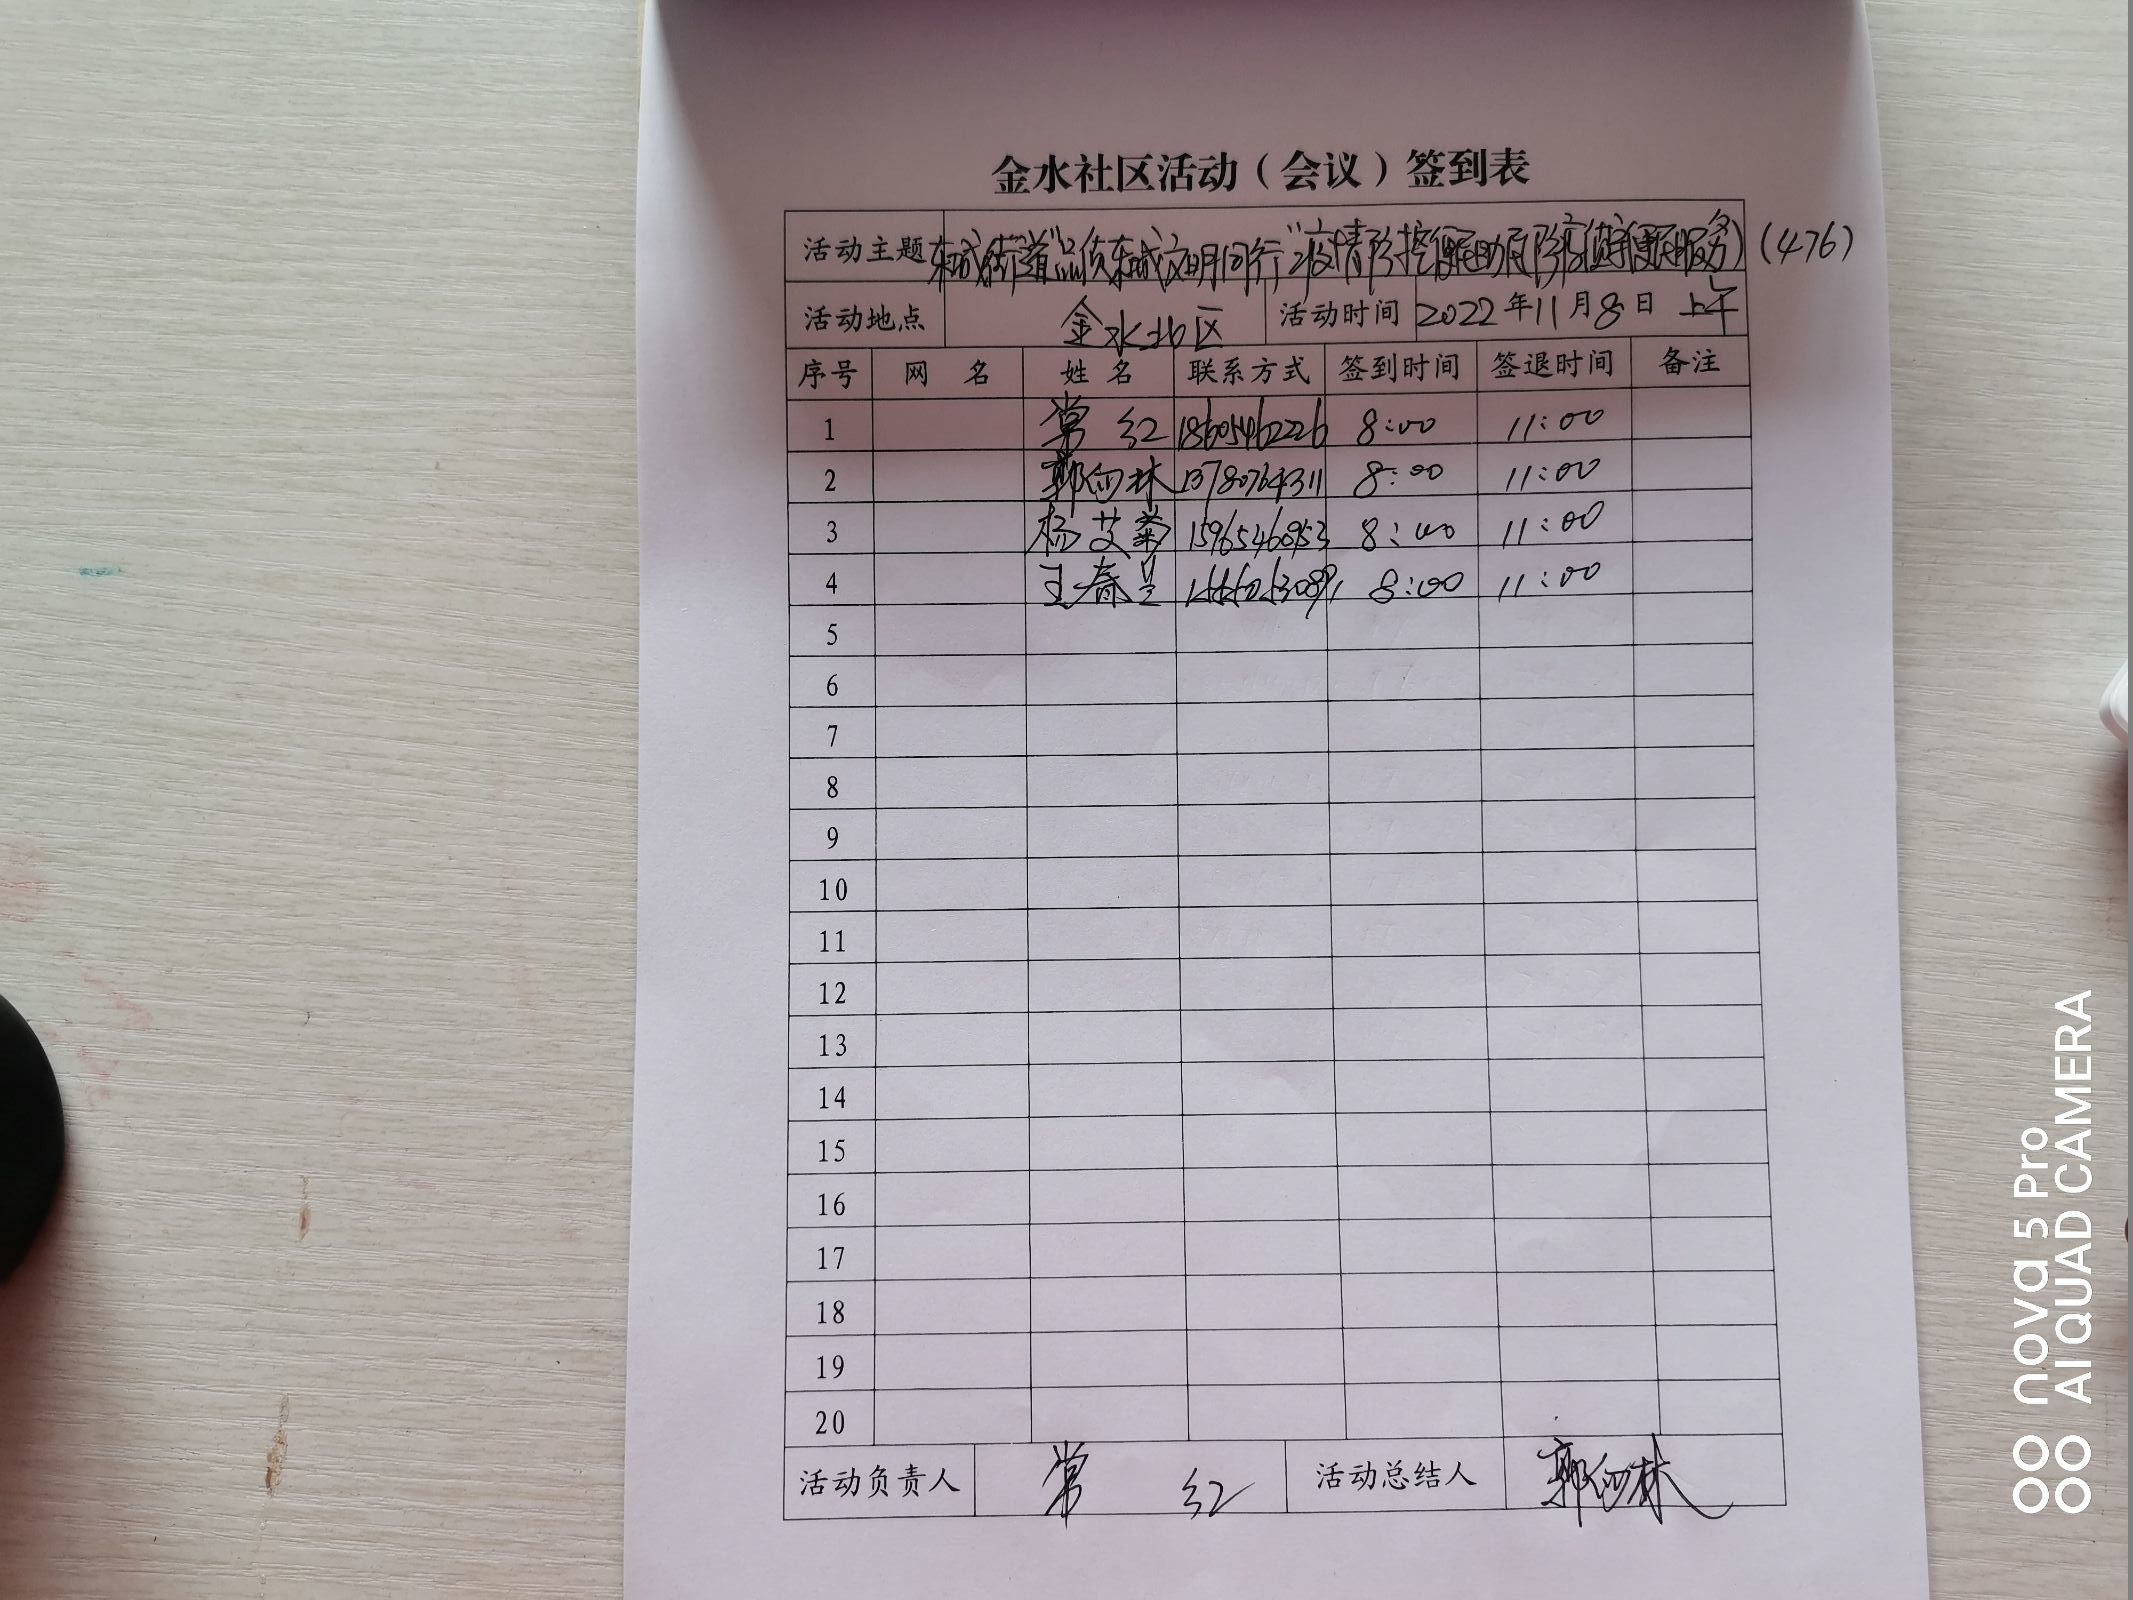 金水社区活动（会议）签到表
活动主题 东城街道"品质东城文明同行"疫情防控便民助民(476)
活动地点 金水北区 活动时间 2022年11月8日 上午
序号 网 名 姓 名 联系方式 签到时间 签退时间 备注
1 常 红 18605462226 8:00 11:00
2 郭向林 13780764311 8:00 11:00
3 杨艾菊 15965460953 8:00 11:00
4 王春 8:00 11:00
5
6
7
8
9
10
11
12
13
14
15
16
17
18
19
20
活动负责人 常 红 活动总结人 郭向林
nova 5 Pro
AI QUAD CAMERA